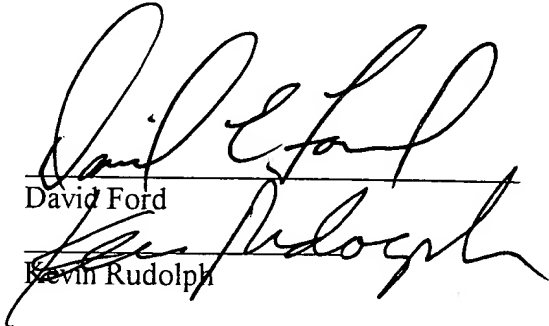 David E. Ford
David Ford
Kevin Rudolph
Kevin Rudolph